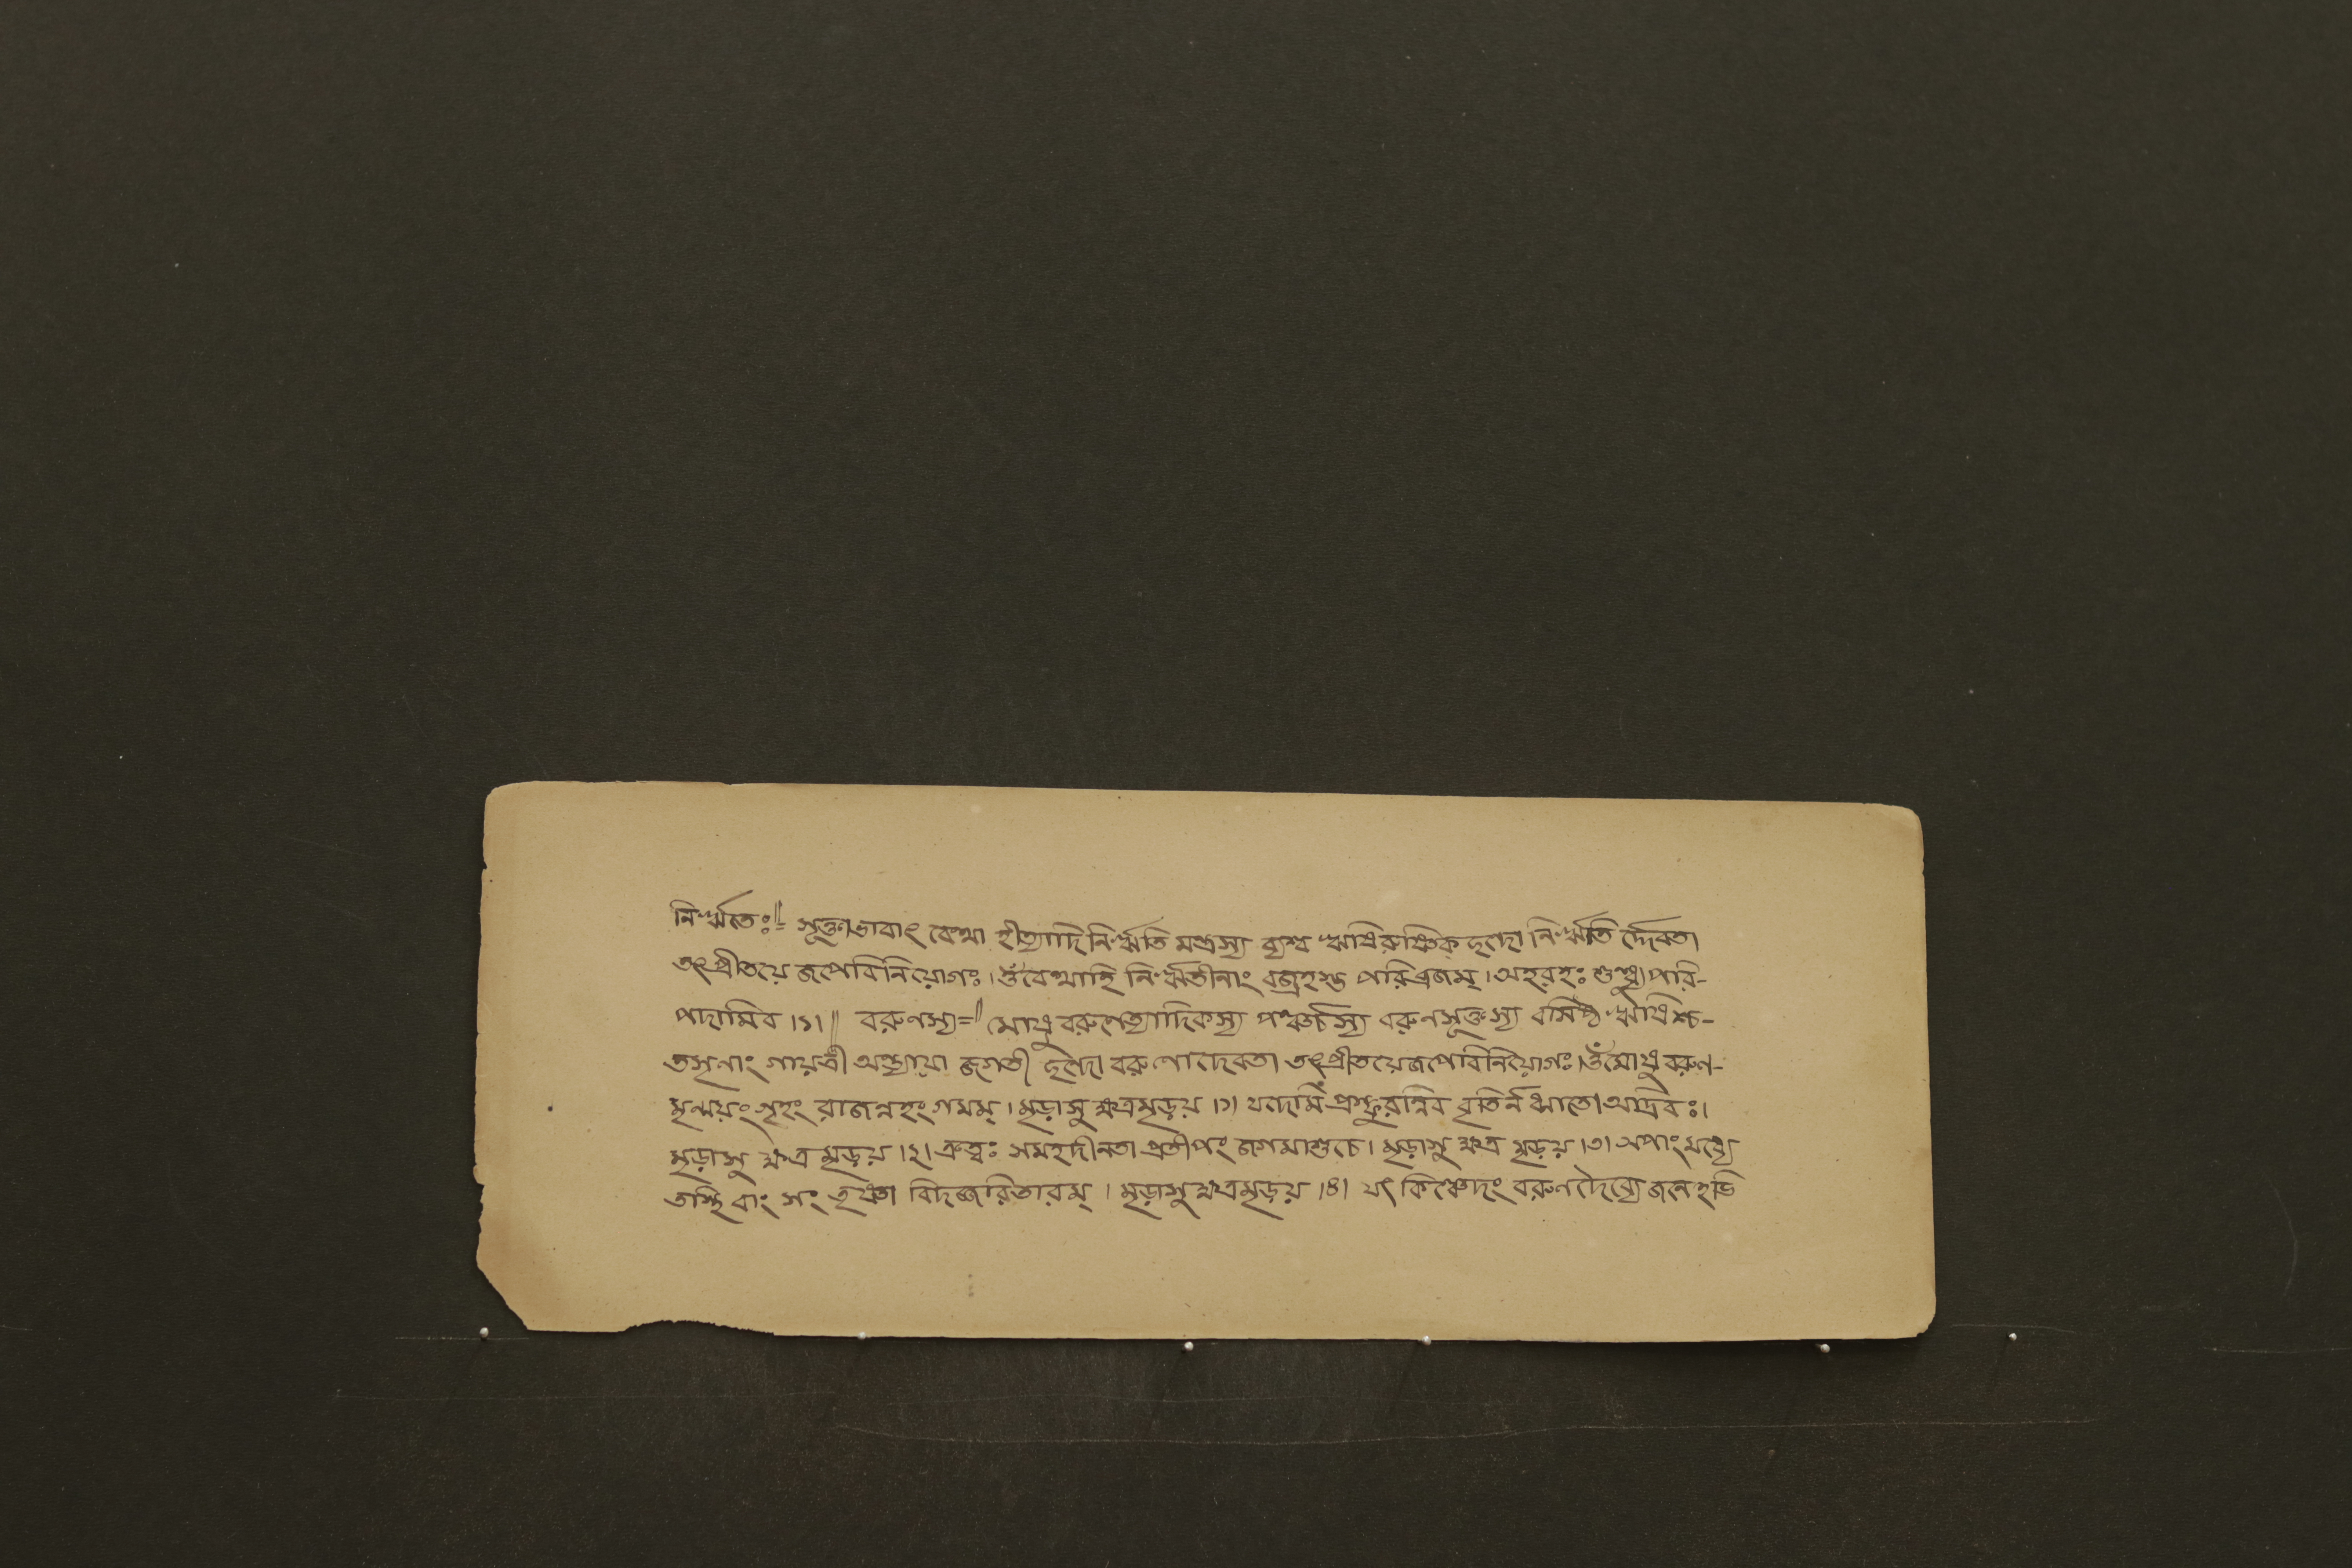 নিঋর্তেঃ॥= সূক্তাভাবাৎ বেত্থা হীত্যাদি নিঋর্তি মন্ত্রস্য ব্যশ্ব ঋষিরুষ্ণিক্ ছন্দো নিঋর্তি র্দ্দেবতা
তৎপ্রীতয়ে জপেবিনিয়োগঃ। ওঁ বেত্থাহি নিঋর্তীনাং বজ্রহস্ত পরিব্রজম্। অহরহঃ শুন্ধ্যু পরি-
পদামিব ।১।॥ বরুণস্য=॥ মোষুবরুণেত্যাদিকস্য পঞ্চর্চস্য বরুণসূক্তস্য বসিষ্ঠ ঋষিশ্চ-
তসৃণাং গায়ত্রী অন্ত্যায়া জগতী ছন্দো বরুণোদেবতা তৎপ্রীতয়েজপেবিনিয়োগঃ। ওঁ মোষুবরুণ-
মৃন্ময়ং গৃহং রাজন্নহং গমম্। মৃড়াসু ক্ষত্রমৃড়য় ।১। যদেমি প্রস্ফুরন্নিব দৃতির্ন ধ্মাতো অদ্রিবঃ।
মৃড়াসু ক্ষত্র মৃড়য় ।২। ক্রত্বঃ সমহদীনতা প্রতীপং জগমাশুচে। মৃড়াসু ক্ষত্র মৃড়য় ।৩। অপাং মধ্যে
তস্থিবাং সং তৃষ্ণা বিদজ্জরিতারম্। মৃড়াসুক্ষত্রমৃড়য় ।৪। যৎ কিঞ্চেদং বরুণদৈব্যে জনেহভি